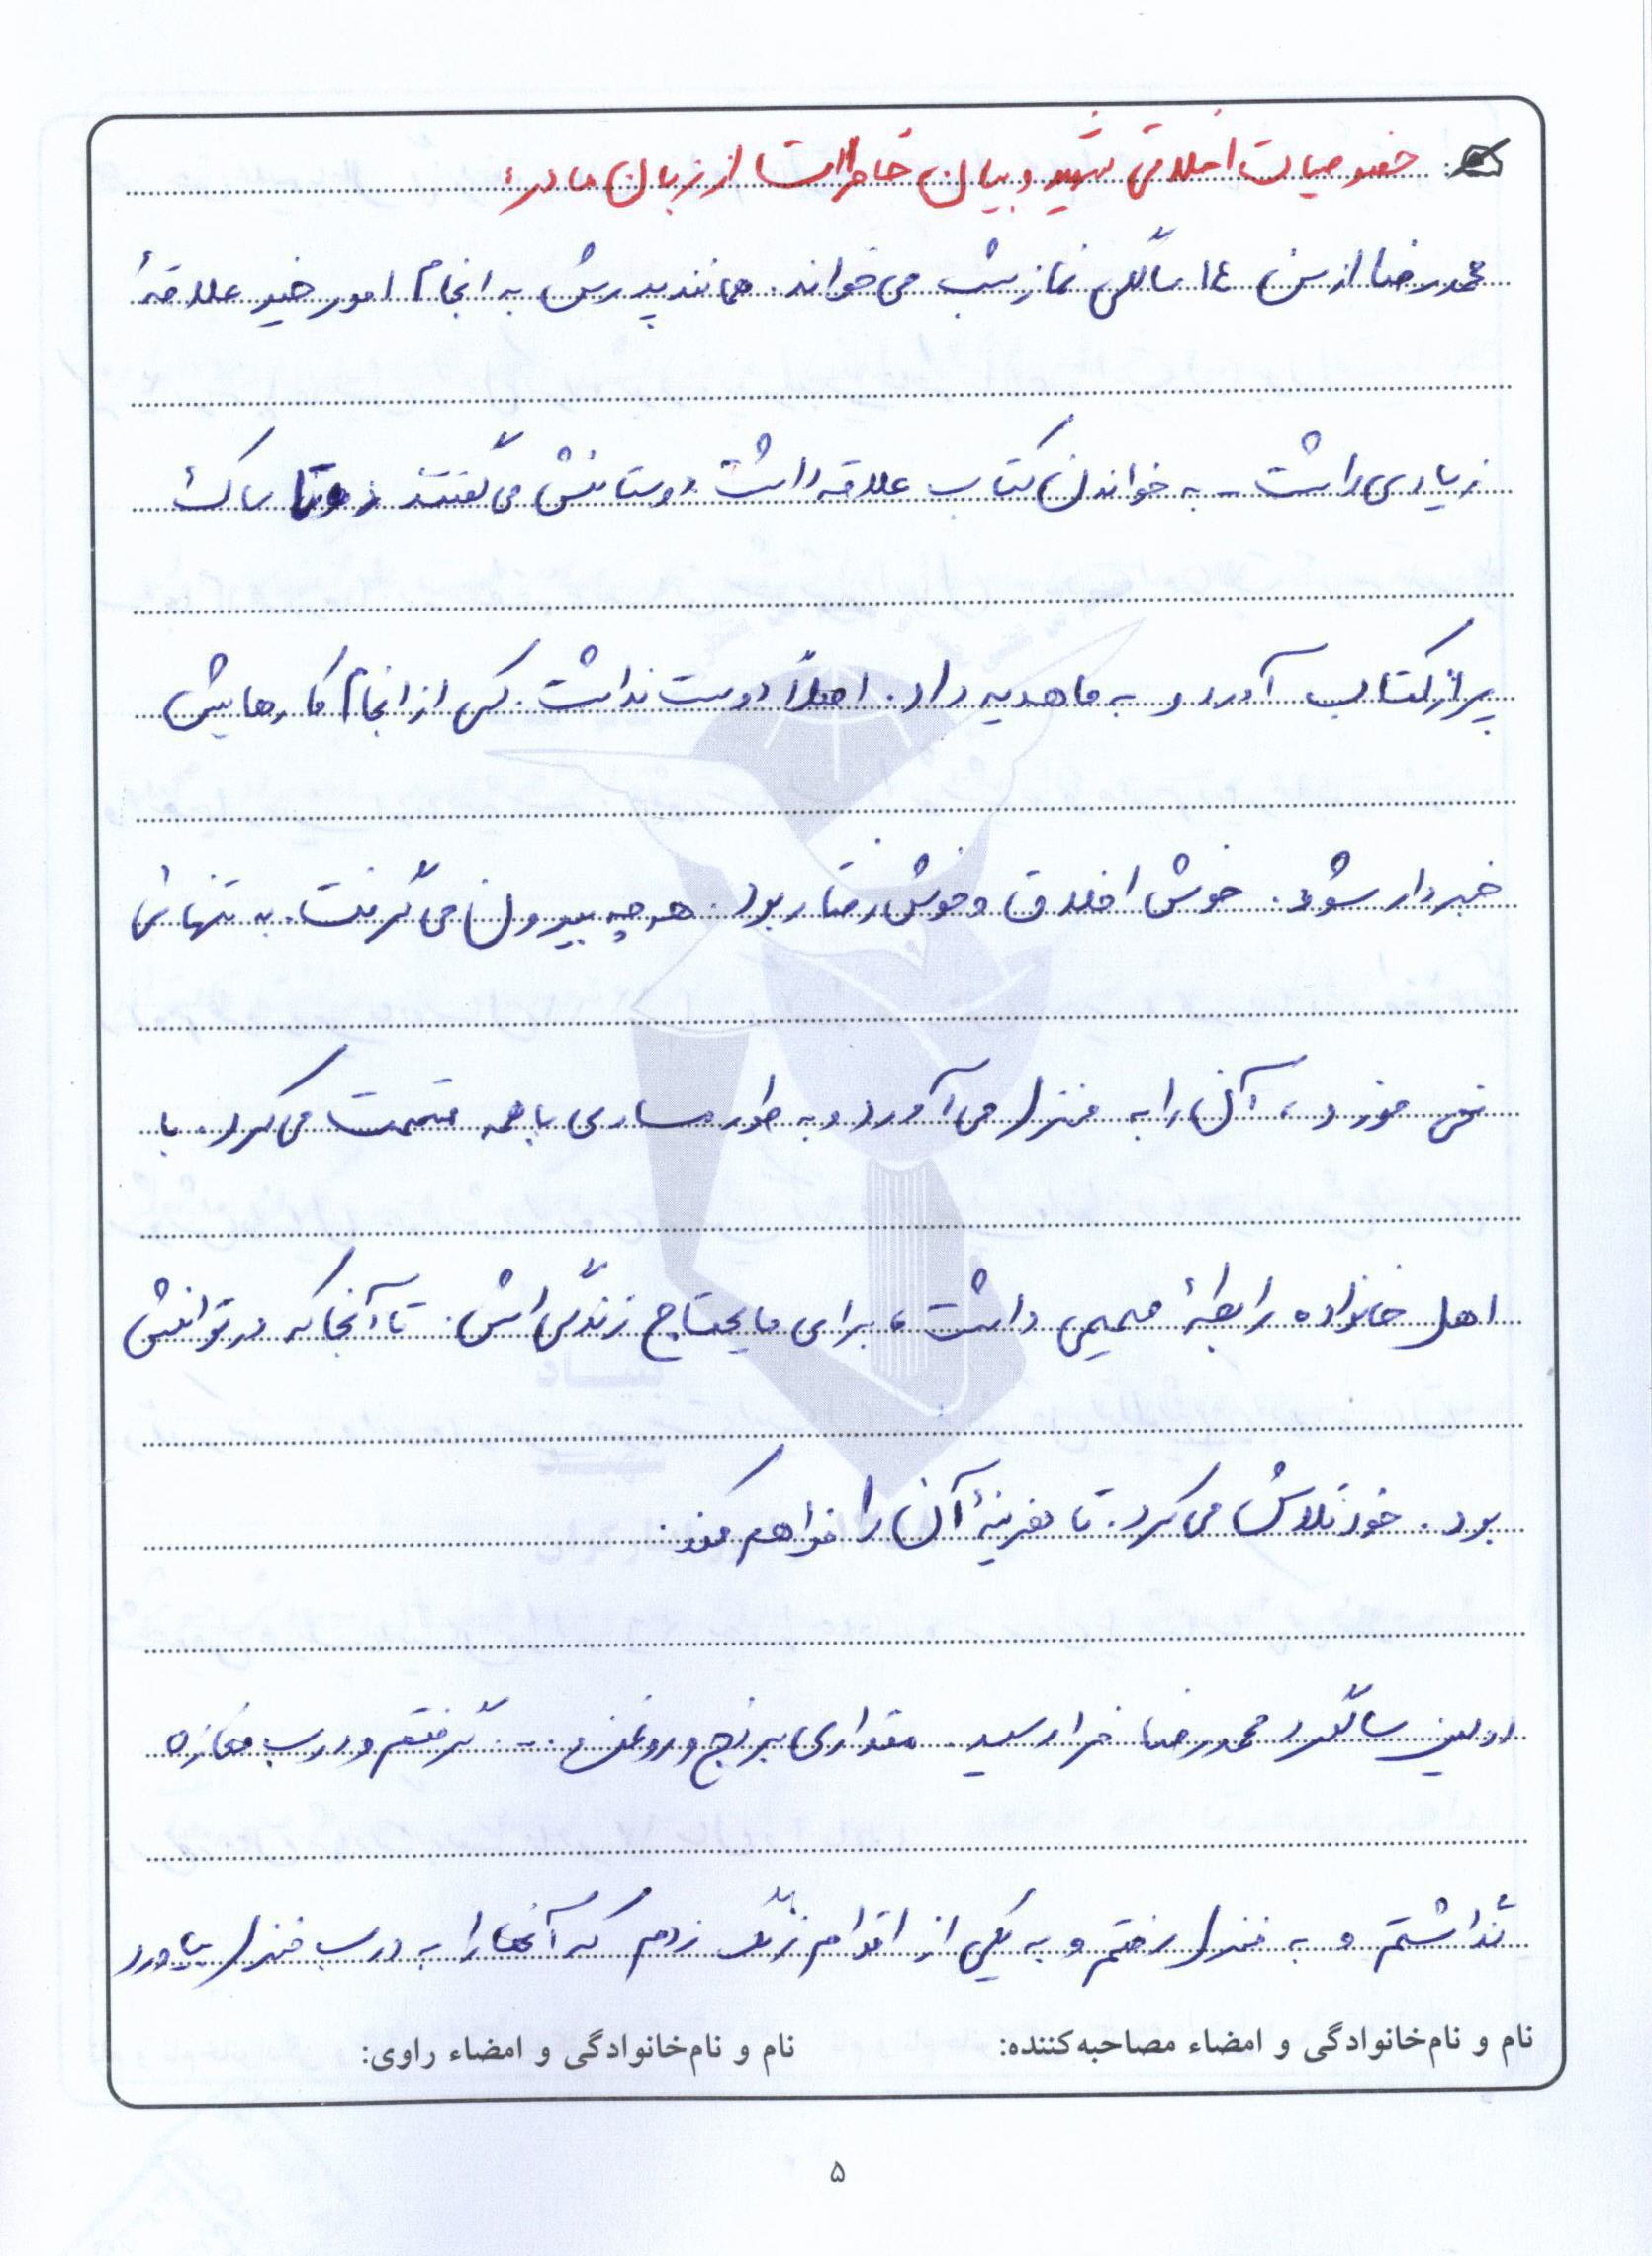 خصوصیات اخلاقی شهید و بیان خاطرات از زبان مادر:
محمدرضا از سن ١٤ سالگی نماز شب می‌خواند. همانند پدرش به انجام امور خیر علاقهٔ
زیادی داشت - به خواندن کتاب علاقه داشت دوستانش می‌گفتند دوتا ساک
پر از کتاب آورد و به ما هدیه داد. اصلاً دوست نداشت. کسی از انجام کارهایش
خبردار شود. خوش اخلاق و خوش رفتار بود. هر چه بیرون می‌گرفت. به تنهائی
نمی خورد و، آن را به منزل می‌آورد و به طور مساوی با همه قسمت می‌کرد. با
اهل خانواده رابطهٔ صمیمی داشت، برای مایحتاج زندگی اش. تا آنجا که در توانش
بود. خود تلاش می‌کرد. تا هزینهٔ آن را فراهم کند.
اولین سالگرد محمدرضا فرا رسید. مقداری برنج و روغن و... گرفتم و درب مغازه
گذاشتم و به منزل رفتم و به یکی از اقوام زنگ زدم که آنها را به درب منزل بیاورد
نام و نام‌خانوادگی و امضاء مصاحبه‌کننده: نام و نام‌خانوادگی و امضاء راوی:
۵